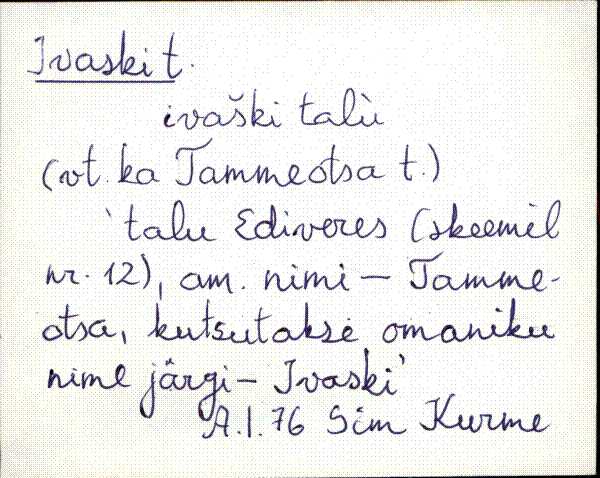 Ivaski t.
ivaški talù
(vt. ka Tammeotsa t.)
'talu Ediveres (skeemil
nr. 12), am. nimi — Tamme-
otsa, kutsutakse omaniku
nime järgi — Ivaski'
A.I.76 Sim Kurme